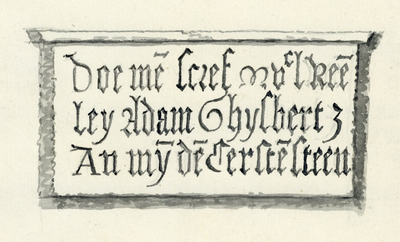 Doe mē scref mvᶜl Reē
ley Adam Ghysbert z
An mȳ dē Eerstē steen